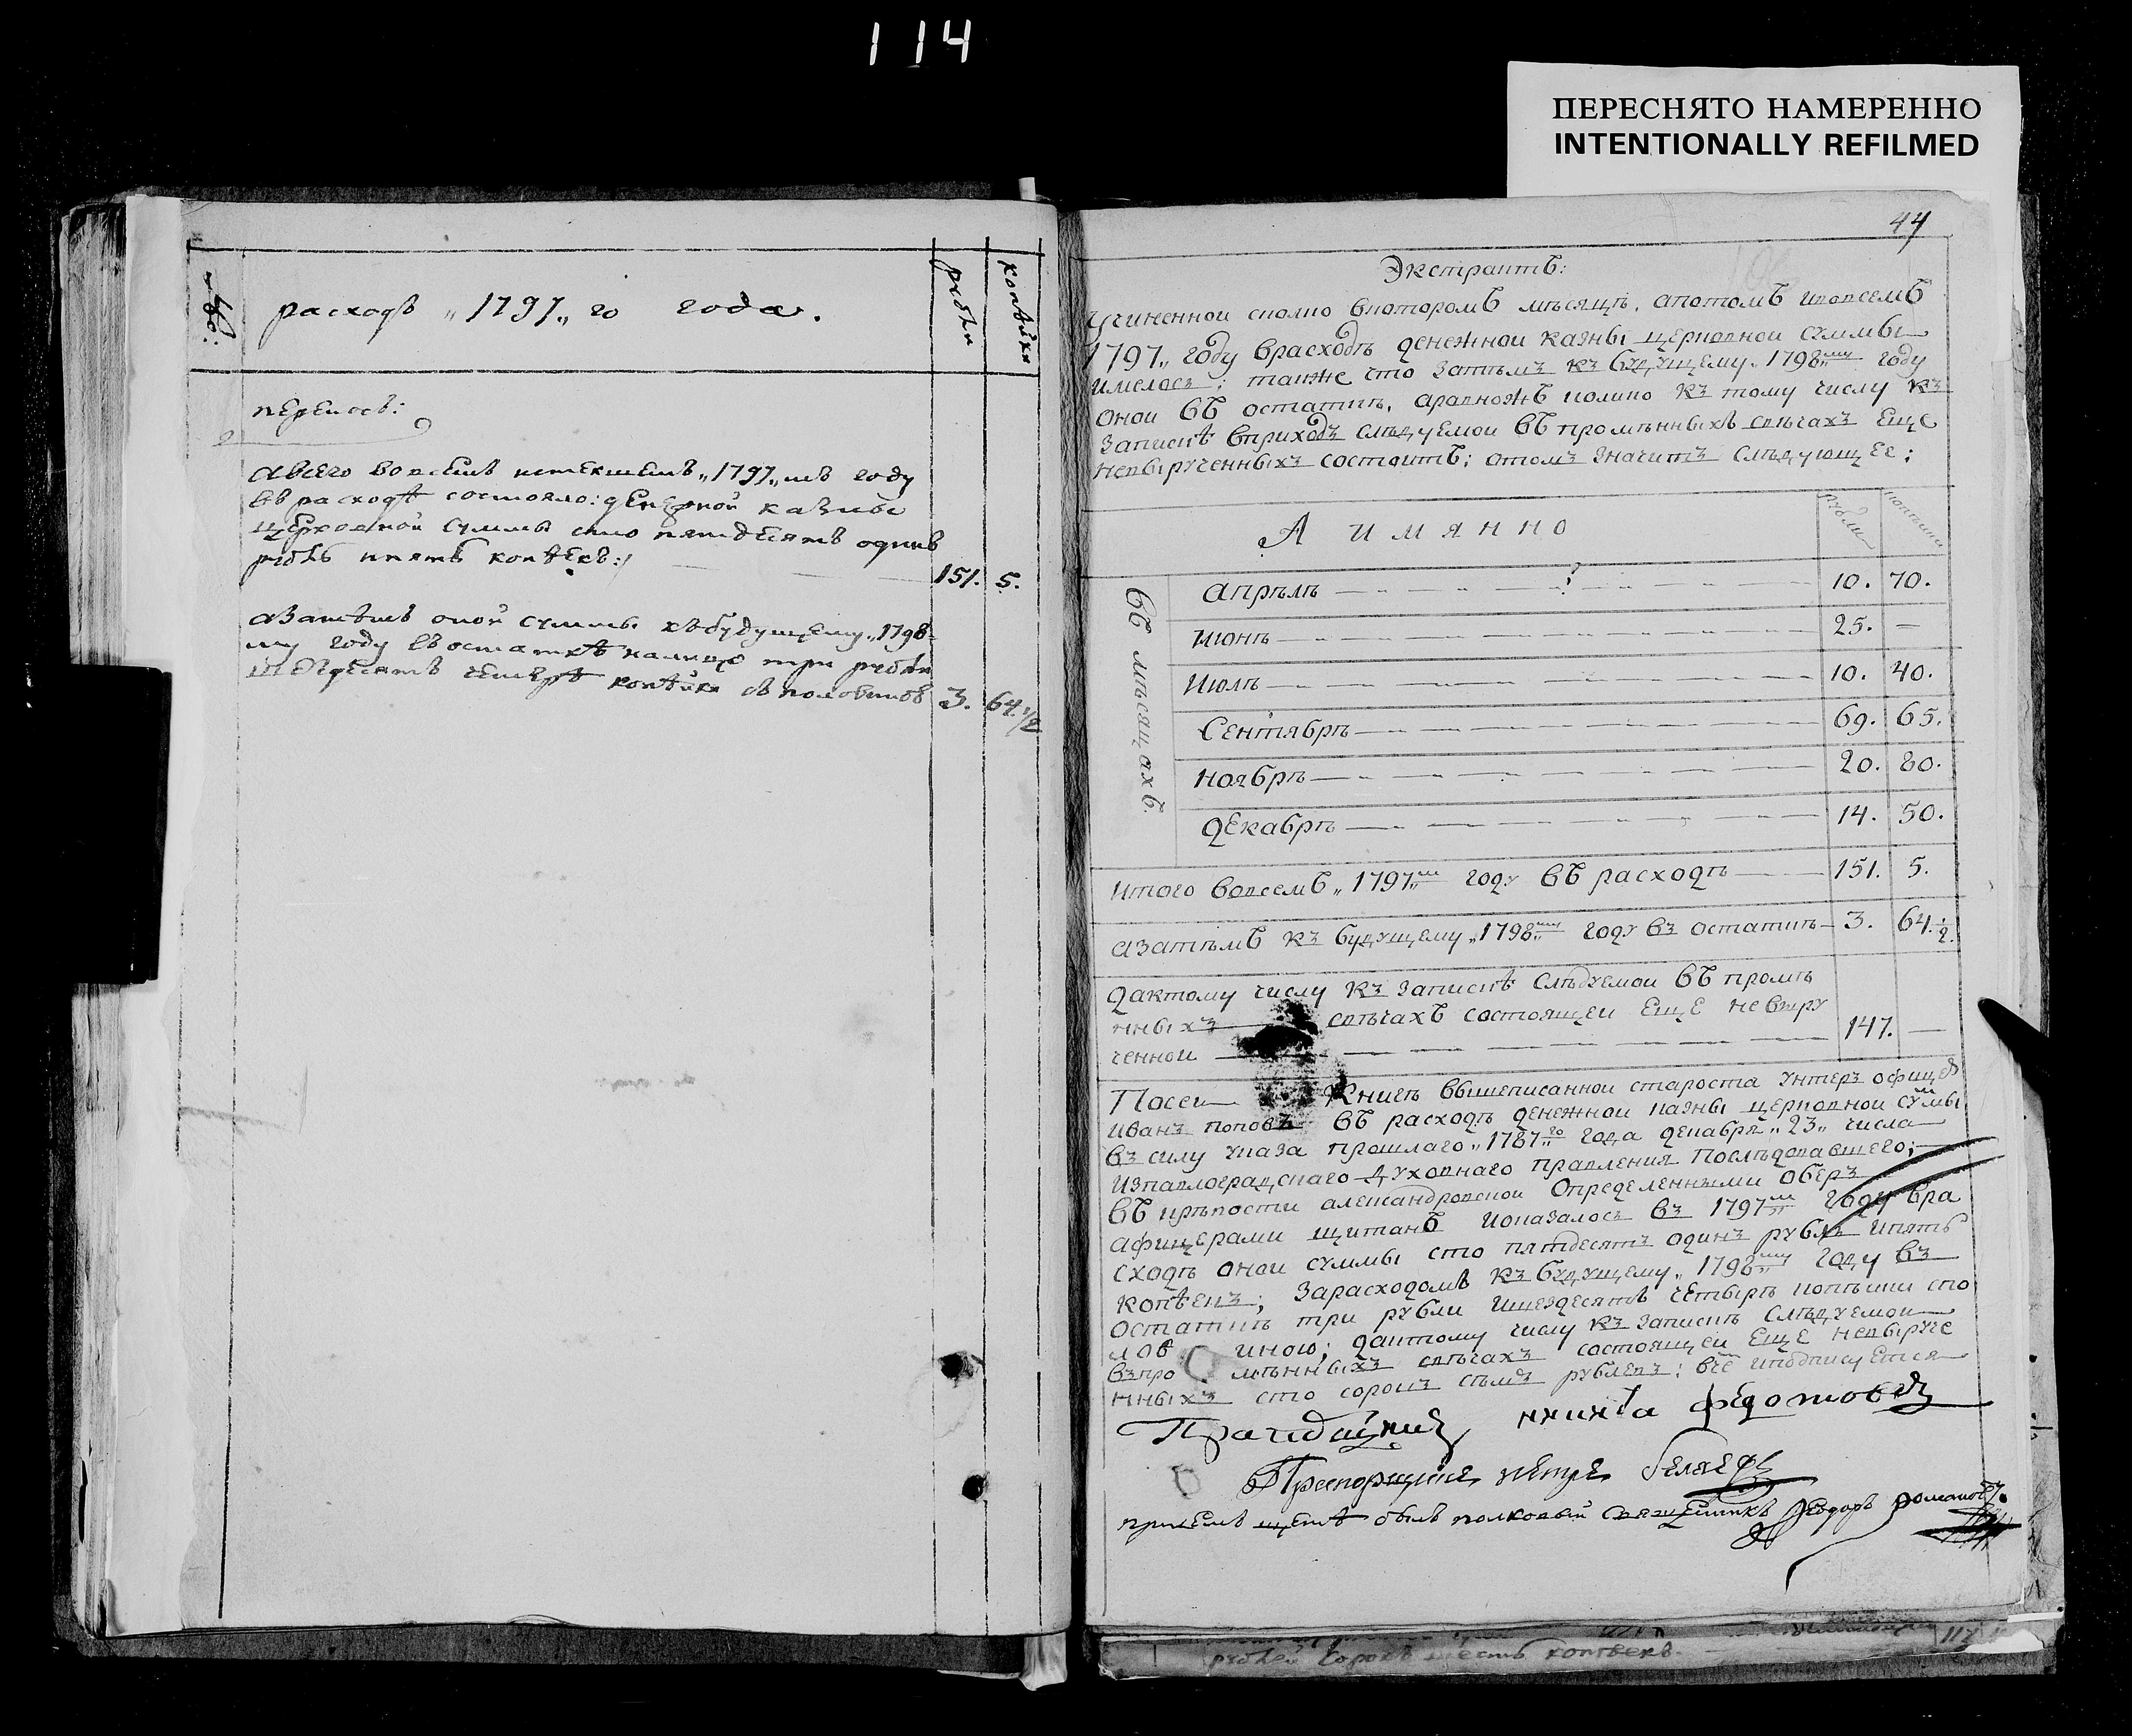 114
ПЕРЕСНЯТО НАМЕРЕННО
INTENTIONALLY REFILMED
расходъ „1797„ го года.
рубли
копѣйки
переносъ:
авсего вовсемъ истекшемъ „1797„ мъ году
въ расходѣ состояло: денежной казны
церковной суммы сто пятдесятъ одинъ
рубль пять копѣекъ:
151. 5.
азатѣмъ оной суммы къбудущему „1798
му году въостаткѣ налицо три рубли
шездесятъ четыре копѣйки съ половиною
3. 64 1/2
44
Экстрактъ:
Учиненной сколко вкоторомъ мѣсяцѣ, апотомъ ивовсемъ
1797„ году врасходѣ денежной казны церковной суммы
имелось; также что затѣмъ къ будущему „1798му году
оной въ остаткѣ, аравножъ колико къ тому числу къ
записке вприходъ слѣдуемой въ промѣнныхъ свѣчахъ еще
невырученныхъ состоитъ; отомъ значитъ слѣдующее;
А имянно
рубли
копѣики
въ мѣсяцахъ
апрѣлѣ 10. 70.
июнѣ 25. —
июлѣ 10. 40.
сентябрѣ 69. 65.
ноябрѣ 20. 80.
декабрѣ 14. 50.
итого вовсемъ „1797мъ году въ расходѣ 151. 5.
азатѣмъ къ будущему „1798му году въ остаткѣ 3. 64. 1/2.
дактому числу къ запискѣ слѣдуемой въ промѣ
нныхъ свѣчахъ состоящей еще невыру
ченной
147. —
Посей книгѣ вышеписанной староста унтеръ офицеръ
иванъ поповъ въ расходѣ денежной казны церковной суммы
въ силу указа прошлаго „1787го года декабря „23„ числа
изпавлоградскаго духовнаго правления послѣдовавшего;
въ крѣпости александровской определенными оберъ
афицерами щитанъ ипоказалось въ 1797мъ году вра
сходѣ оной суммы сто пятдесятъ одинъ рубль ипять
копѣекъ; зарасходомъ къ будущему „1798му году въ
остаткѣ три рубли ишездесятъ четырѣ копѣики спо
лов иною; дактому числу къ запискѣ слѣдуемой
въпро мѣнныхъ свѣчахъ состоящей еще невыруче
нныхъ сто сорокъ сѣмь рублевъ;
никита федотовъ
Прапорщикъ петръ беляевъ
присемъ щетѣ былъ полковый священникъ Феодоръ романовъ.
рублей сорокъ шесть копѣекъ.